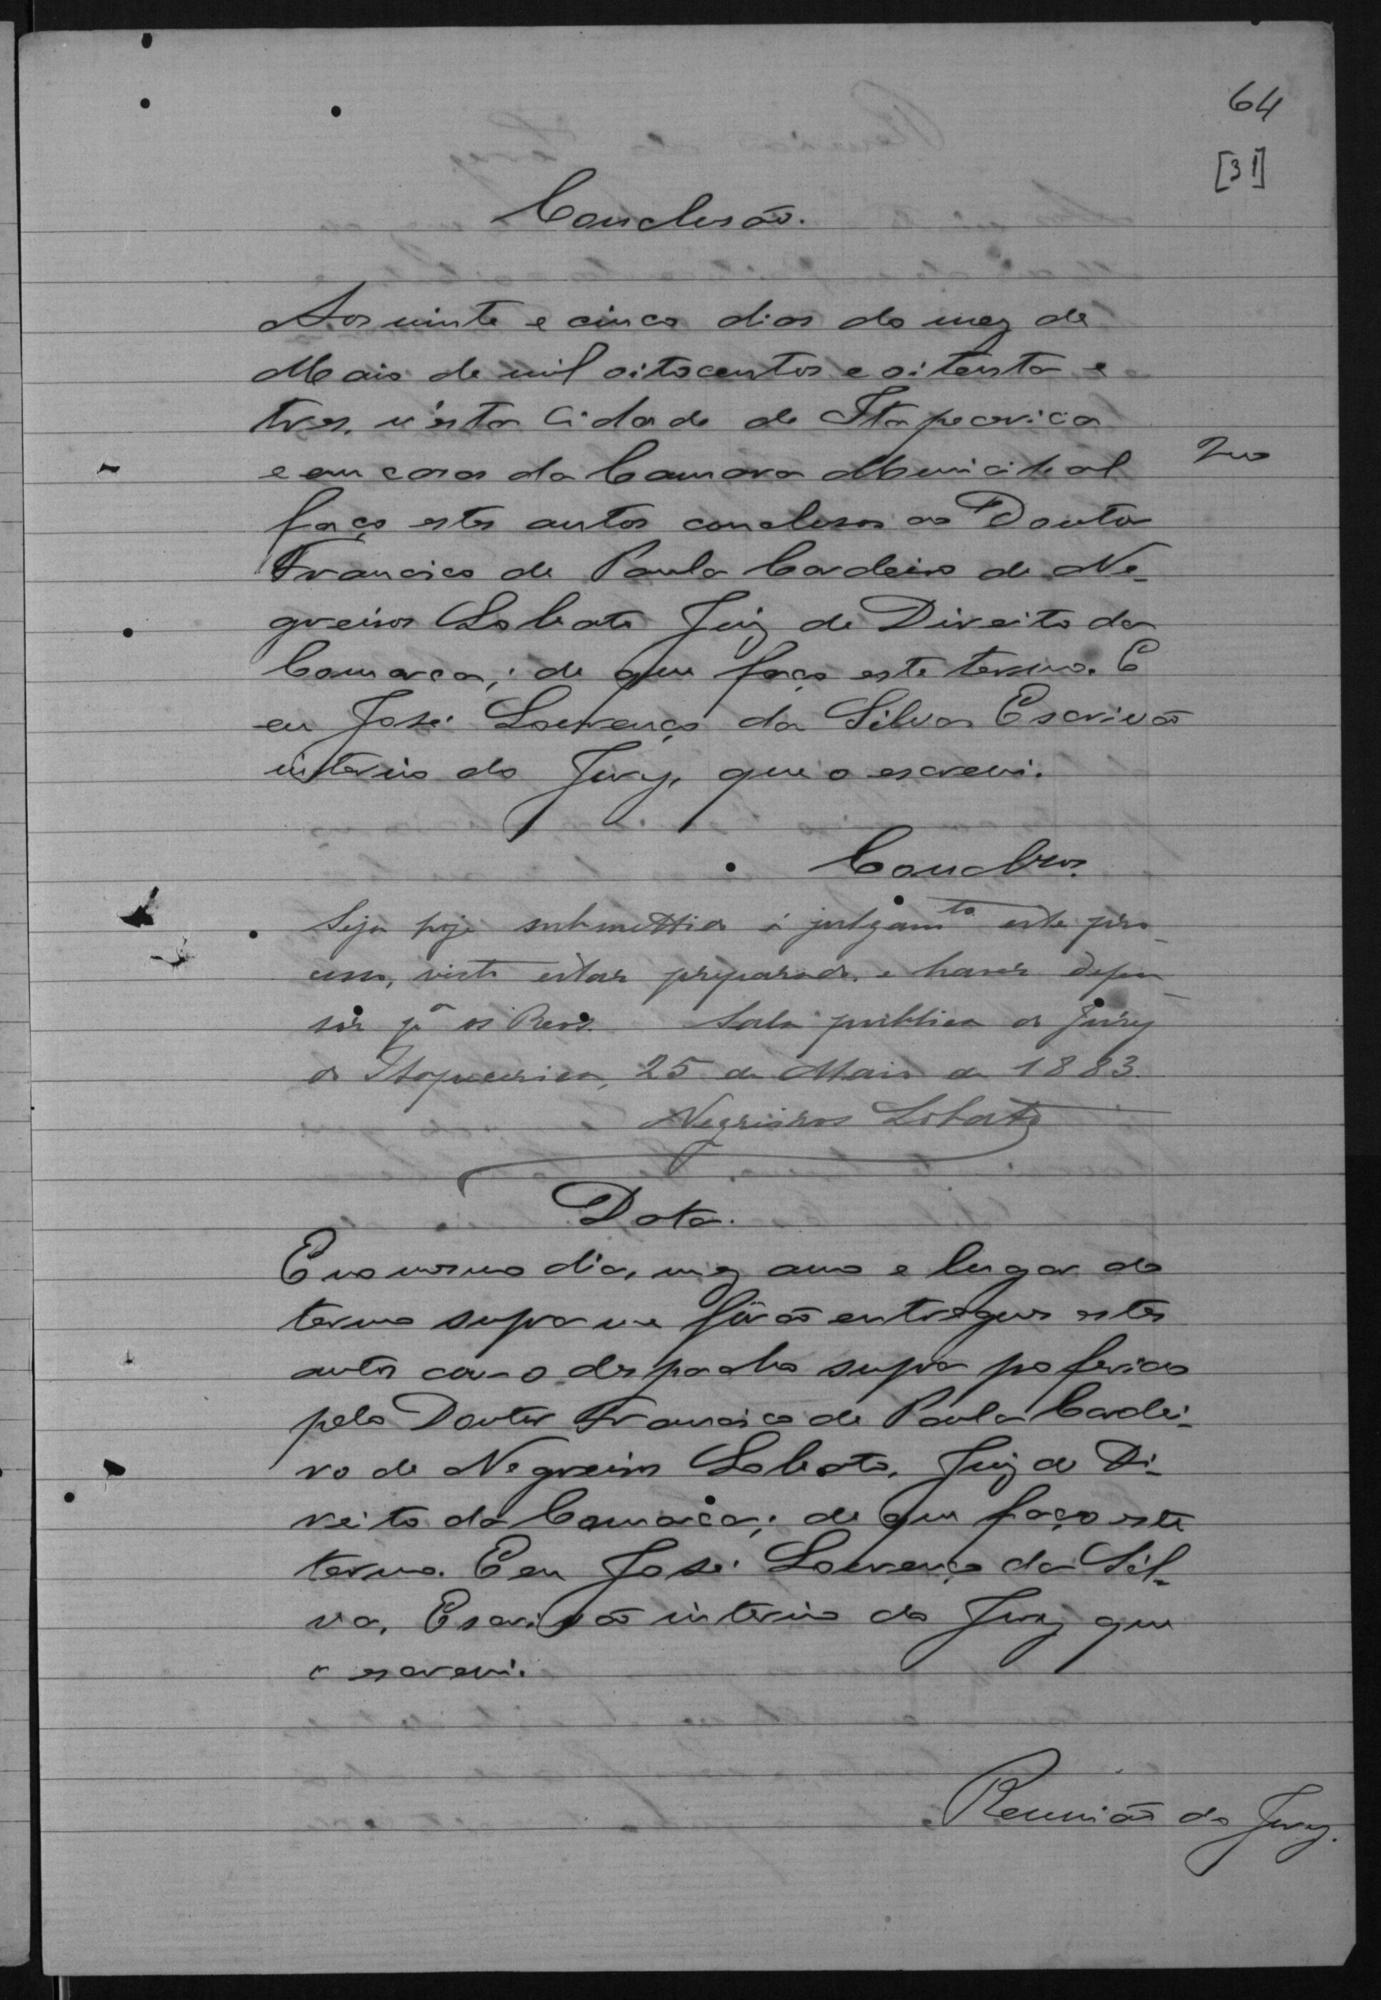 64
[31]
Conclusão.
Aos vinte e cinco dias do mez de
Maio de mil oitocentos e oitenta e
tres, n'esta Cidade de Itapecerica
e em casa da Camara Municipal
faço estes autos conclusos ao Doutor
Francisco de Paula Cordeiro de Ne-
greiros Lobato Juiz de Direito da
Comarca; de que faço este termo. E
eu José Lourenço da Silva Escrivão
interino do Jury, que o escrevi.
Conclusos.
Seja hoje submettido á julgamto este pro-
cesso, visto estar preparado, e haver defen-
sor pa os Reos. Sala publica do Jury
de Itapecerica, 25 de Maio de 1883.
Negreiros Lobato
Data.
E no mesmo dia, mez anno e lugar do
termo supra me forão entregues estes
autos com o despacho supra proferido
pelo Doutor Francisco de Paula Cordei-
ro de Negreiros Lobato, Juiz de Di-
reito da Comarca; de que faço este
termo. E eu José Lourenço da Sil-
va, Escrivão interino do Jury que
o escrevi.
Reunião do Jury.